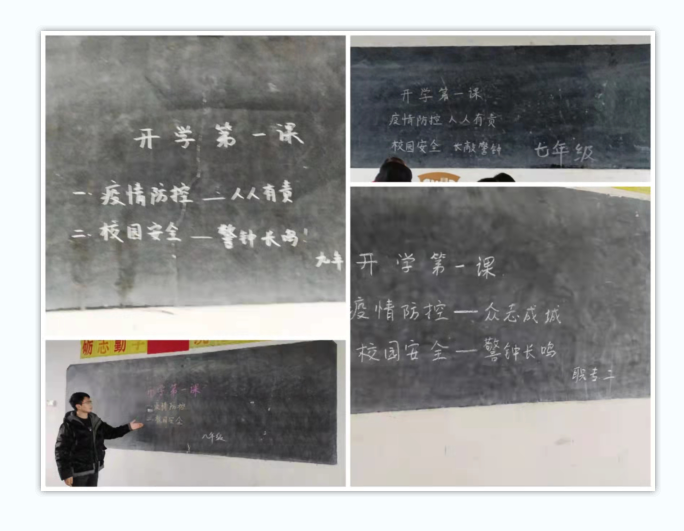 开学第一课
一.疫情防控——人人有责
二.校园安全—警钟长鸣!
九年
开学第一课
疫情防控 人人有责
校园安全 长敲警钟
七年级
开学第一课
疫情防控——众志成城
校园安全—警钟长鸣
职专二
励志勤学
开学第一课
疫情防控
校园安全
八年级